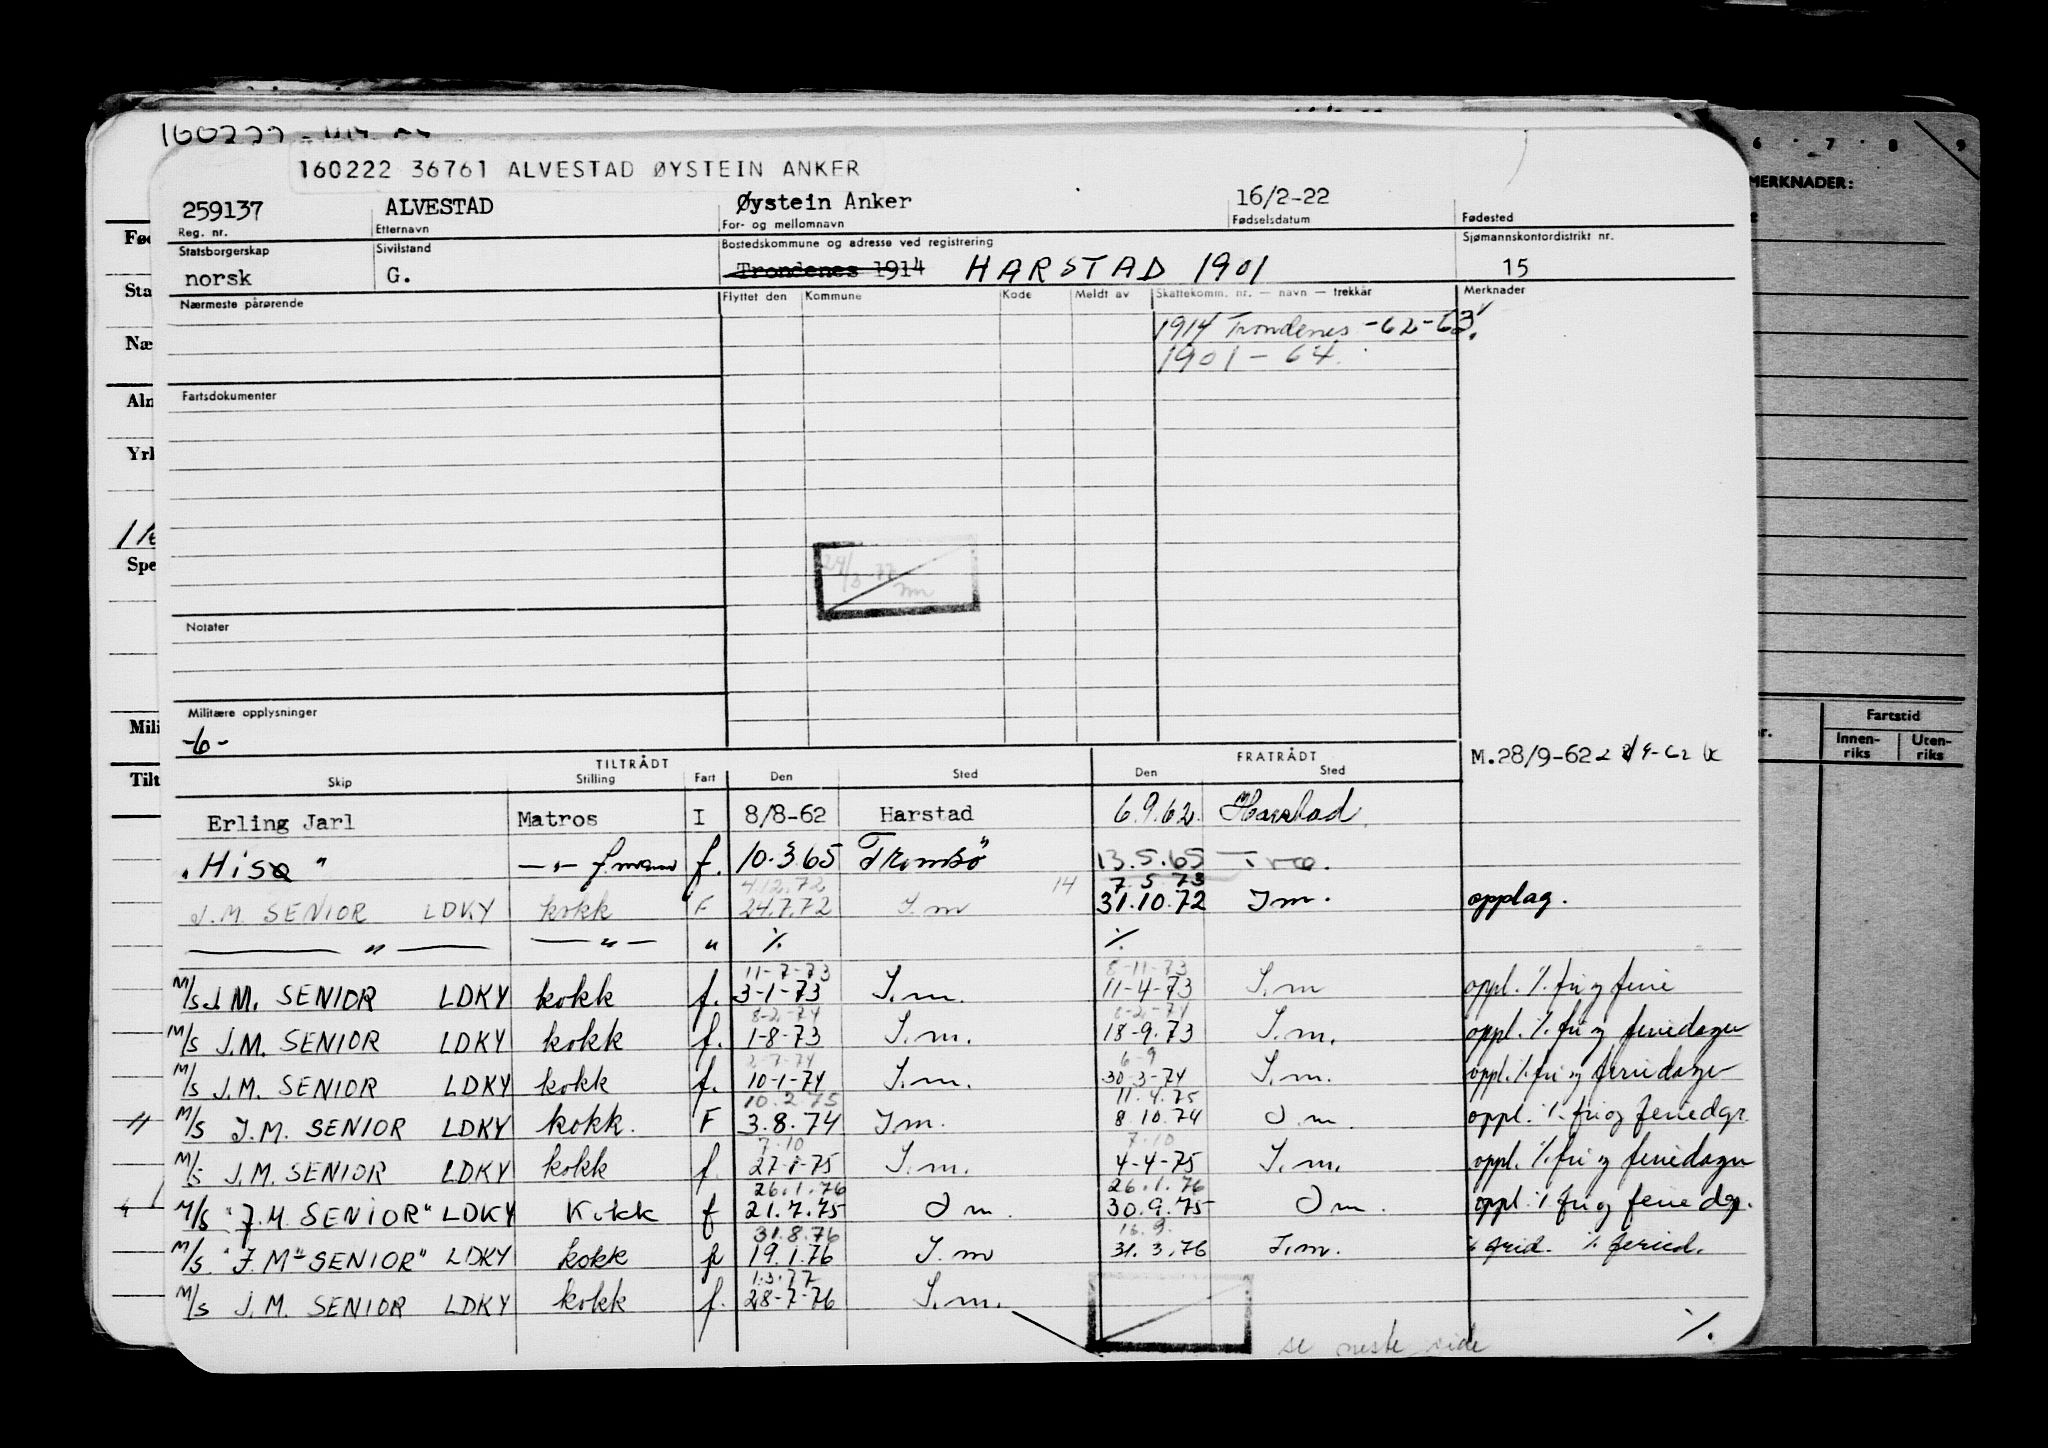 160222 36761 ALVESTAD ØYSTEIN ANKER
259137 ALVESTAD Øystein Anker 16/2-22
Reg. nr. Etternavn For- og mellomnavn Fødselsdatum Fødested
Statsborgerskap Sivilstand Bostedskommune og adresse ved registrering Sjømannskontordistrikt nr.
norsk G. Trondenes 1914 HARSTAD 1901 15
Nærmeste pårørende Flyttet den Kommune Kode Meldt av Skattekomm. nr. — navn — trekkår Merknader
1914 Trondenes -62-63.
1901 - 64.
Fartsdokumenter
Notater
Militære opplysninger
-6-
TILTRÅDT FRATRÅDT M.28/9-62
Skip Stilling Fart Den Sted Den Sted
Erling Jarl Matros I 8/8-62 Harstad 6.9.62. Harstad
"Hisø" — " — f. 10.3.65 Tromsø 13.5.65 Trø.
4.12.72 14 7.5.73
J.M. SENIOR LDKY kokk F 24.7.72 I.m 31.10.72 Im. opplag.
— " — — " — " % %
11-7-73 8-11-73
M/S J.M. SENIOR LDKY kokk f. 3-1-73 I.m. 11-4-73 I.m oppl. %. fri og ferie
8-2-74 8-2-74
M/S J.M. SENIOR LDKY kokk f. 1-8-73 I.m. 18-9.73 I.m. oppl. %. fri og feriedager
2-7-74 6-9
M/S J.M. SENIOR LDKY kokk f. 10-1-74 I.m. 30-3-74 I.m. oppl. %. fri og feriedager
10.2.75 11.4.75
M/S J.M. SENIOR LDKY kokk. F 3.8.74 Im. 8.10.74 I m. oppl. %. fri og feriedgr.
7.10 7.10
M/S J.M. SENIOR LDKY kokk f. 27-1-75 I.m. 4-4-75 I.m. oppl. %. fri og feriedager
26.1.76 26.1.76
M/S "J.M. SENIOR" LDKY Kokk f 21.7.75 I m. 30.9.75 I m. oppl. % fri og feriedgr.
31.8.76 16.9.
M/S. "J.M" SENIOR" LDKY kokk f 19.1.76 I.m 31.3.76 I.m. % frid. % feried.
1.3.77
M/S J.M. SENIOR LDKY kokk f. 28-7-76 I.m.
se neste side %.
6 7 8 9
MERKNADER:
Fød
Sta
Næ
Aln
Yrl
Spe
Mili
Tilt
Fartstid
Innen-
riks
Uten-
riks